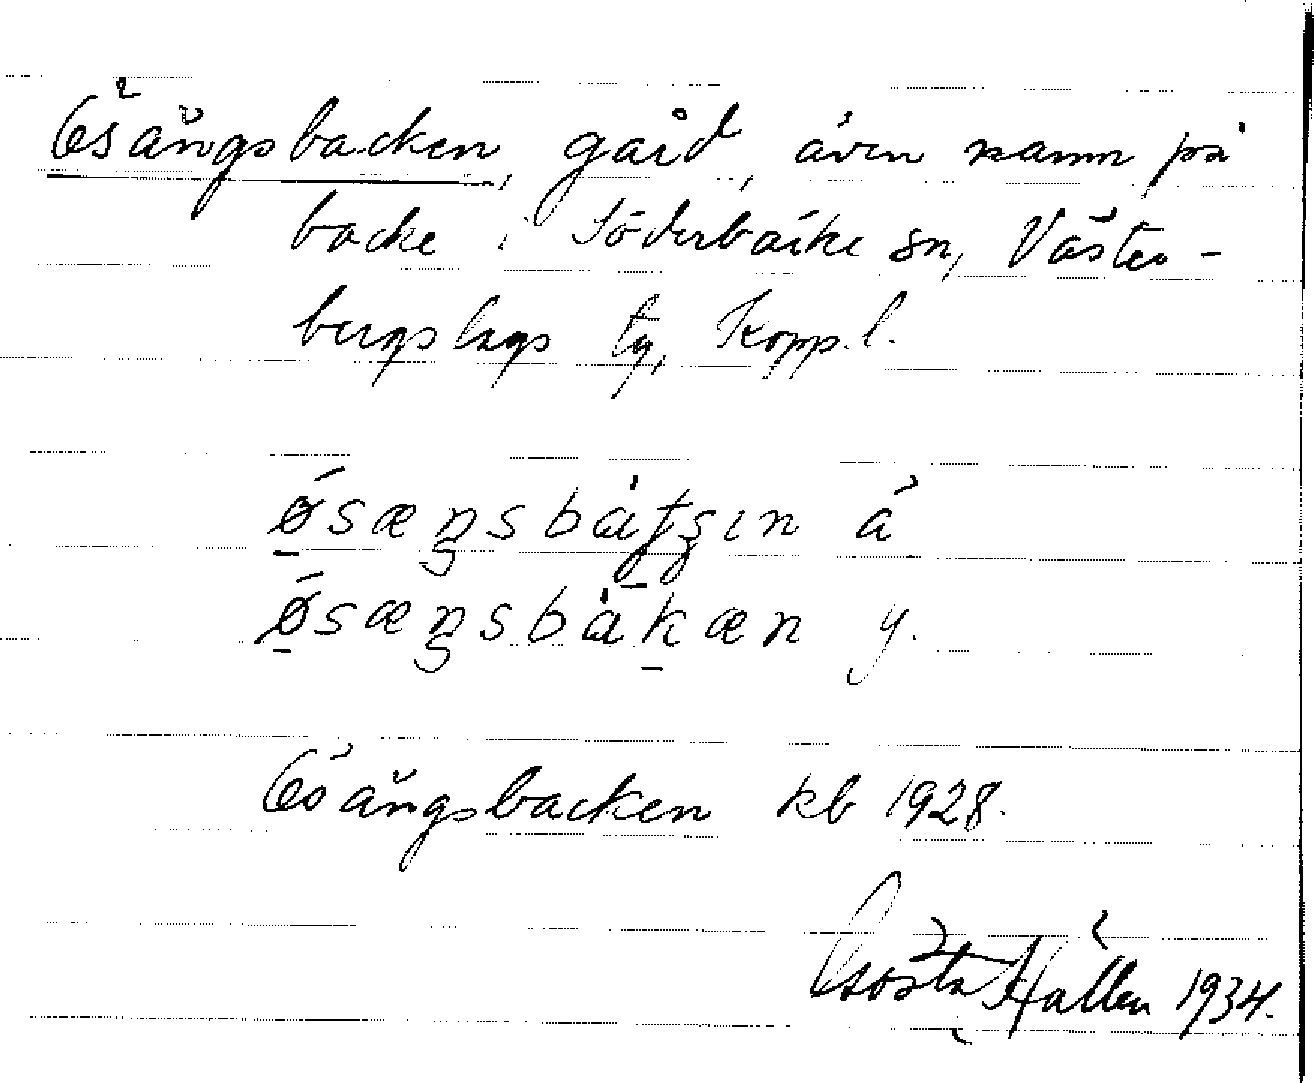 Ösängsbacken, gård, även namn på
backe i Söderbärke sn, Väster-
bergslags tg, Kopp. l.
ǿsæŋsbàtʃɪn á
ǿsæŋsbàkæn y.
Ösängsbacken kb 1928.
Gösta Hallén 1934.